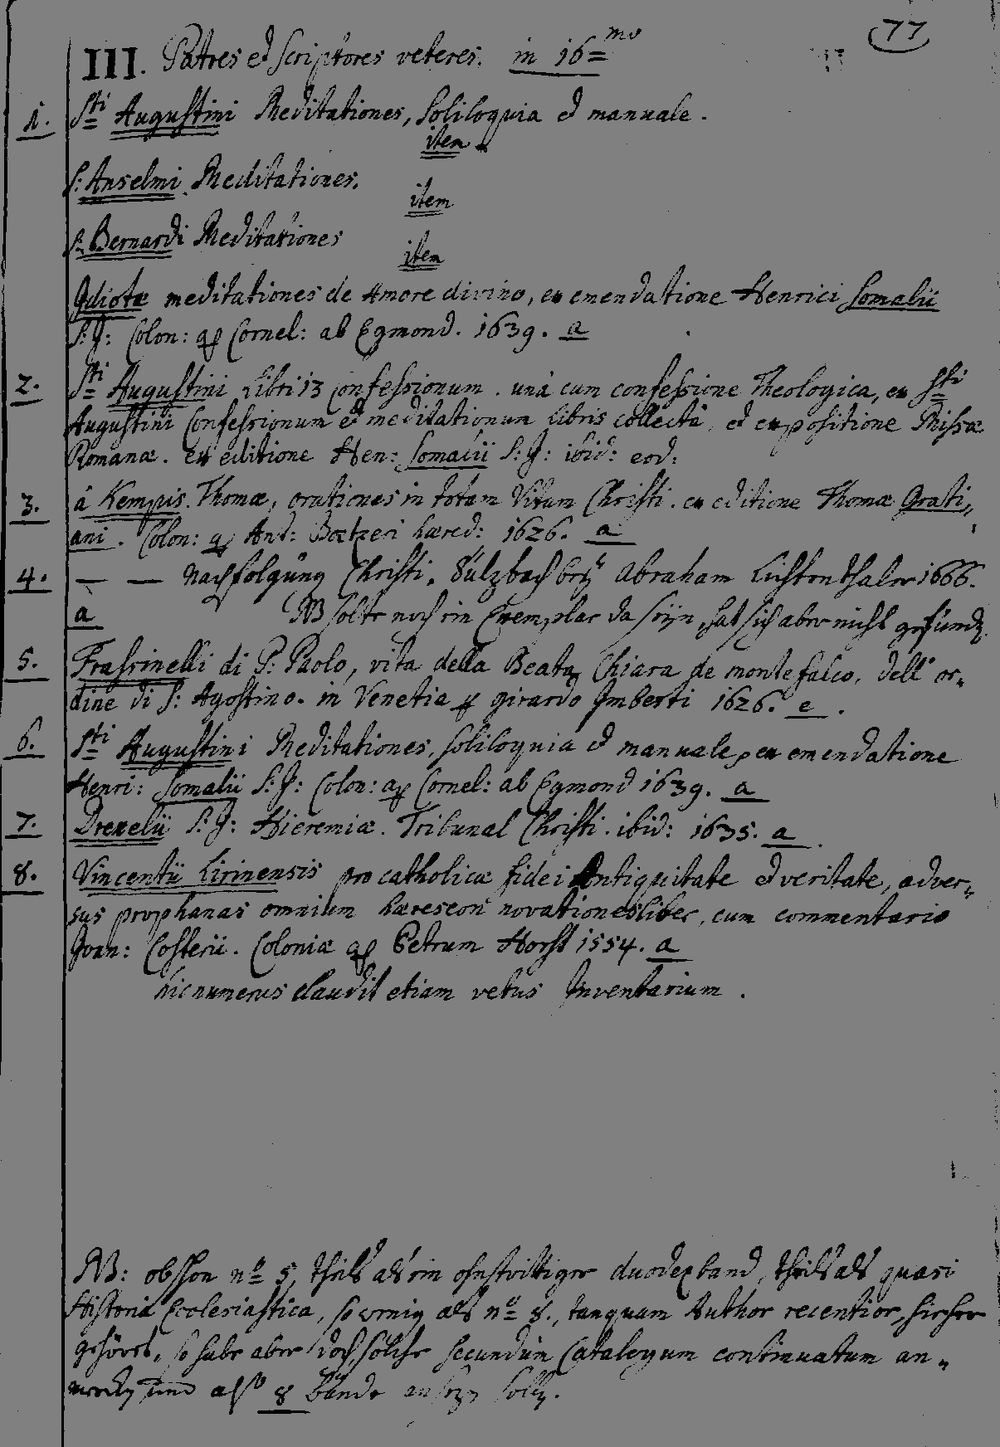 77
III. Patres et scriptores veteres. in 16mo
1. Sti Augustini Meditationes, Soliloquia et manuale.
item
S: Anselmi Meditationes.
item
S. Bernardi Meditationes
item
Idiotæ meditationes de Amore divino, ex emendatione Henrici Somalii
S: J: Colon: ap Cornel: ab Egmond. 1639. a
2. Sti Augustini Libri 13 Confessionum. unà cum confessione Theologica, ex Sti
Augustini Confessionum et meditationum libris collectâ, et expositione Missæ
Romanæ. ex editione Hen: Somalii S: J: ibid: eod:
3. à Kempis. Thomæ, orationes in totam Vitam Christi. ex editione Thomæ Grati„
ani. Colon: ap Ant: Boetzeri hæred: 1626. a
4. — — Nachfolgung Christi. Sulzbach bey Abraham Lichtenthaler 1666.
a NB solte noch ein Exemplar da seyn, hat sich aber nicht gefunden.
5. Frascinelli di P: Paolo, vita della Beata Chiara de monte falco, dell' or„
dine di S: Agostino. in Venetia girardo Imberti 1626. e.
6. Sti Augustini Meditationes, soliloquia et manuale, ex emendatione
Henri: Somalii S: J: Colon: ap Cornel: ab Egmond 1639. a
7. Drexelii S: J: Hieremiæ. Tribunal Christi. ibid: 1635. a
8. Vincentii Lirinensis pro catholicæ fidei Antiquitate et veritate, adver„
sus prophanas omnium hæreseon novationes liber, cum commentario
Joan: Costerii. Coloniæ ap Petrum Horst 1554. a
hic numerus claudit etiam vetus Inventarium.
NB: obschon no 5, theils als ein ohnstrittiger duodezband, theils als quasi
Historia Ecclesiastica, so wenig als no 8., tanquam Author recentior, hieher
gehöret, so habe aber doch solche secundum Catalogum continuatum an„
merken und also 8 Bände ansezen sollen.